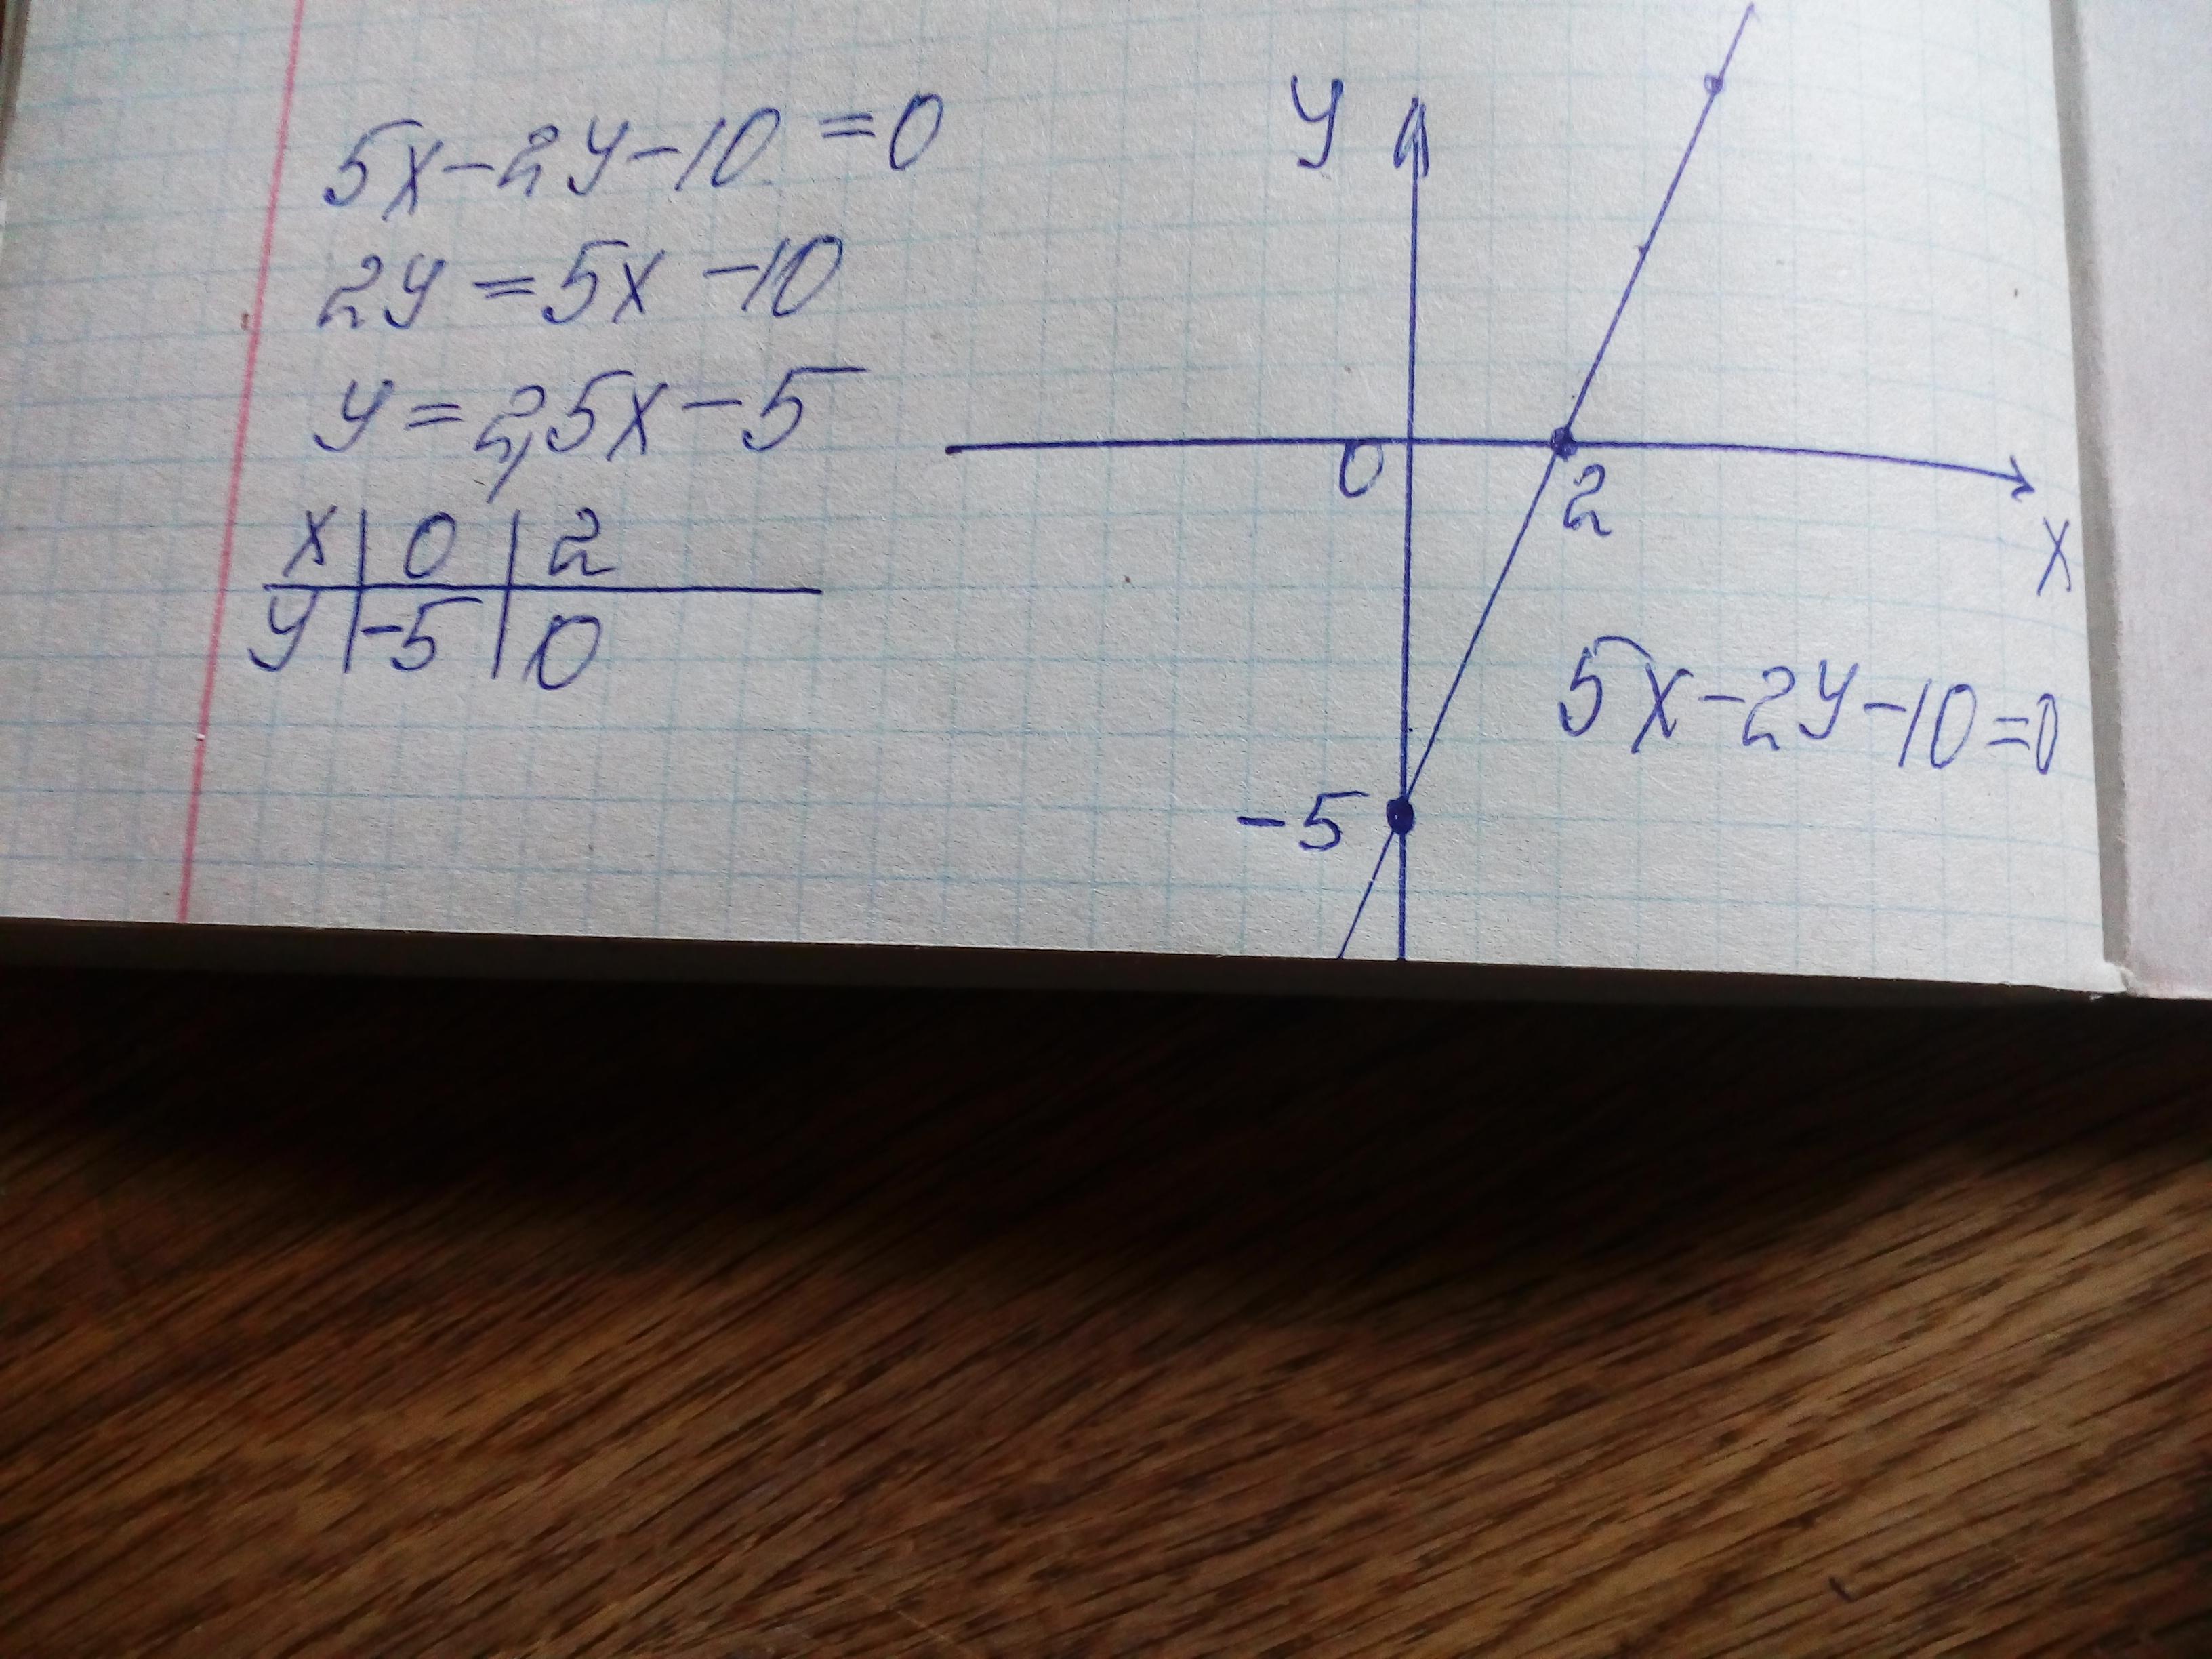 5x-2y-10=0
2y=5x-10
y=2,5x-5
x | 0 | 2
y | -5 | 0
y
0
2
x
5x-2y-10=0
-5